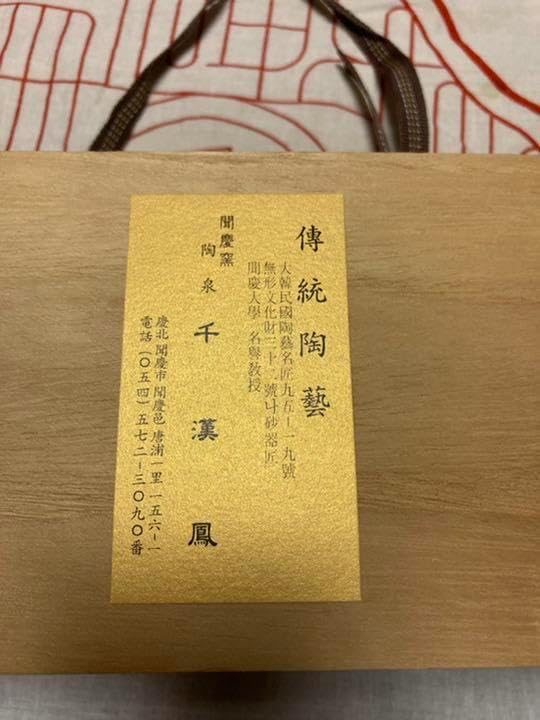 傳統陶藝
大韓民國陶藝名匠九五-一九號
無形文化財三十二號나砂器匠
聞慶大學 名譽教授
聞慶窯
陶泉 千漢鳳
慶北 聞慶市 聞慶邑 唐浦一里 一五六-一
電話 (〇五四) 五七二-三〇九〇番